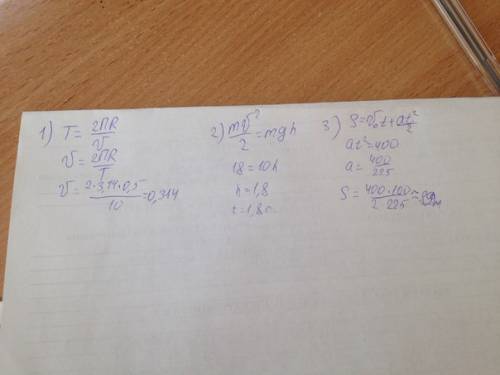 1) T = 2ПR/υ
υ = 2ПR/T
υ = 2·3,14·0,5/10 = 0,314
2) mυ²/2 = mgh
18 = 10h
h = 1,8
3) S = υ₀t + at²/2
at² = 400
a = 400/225
S = 400·100/2·225 ≈